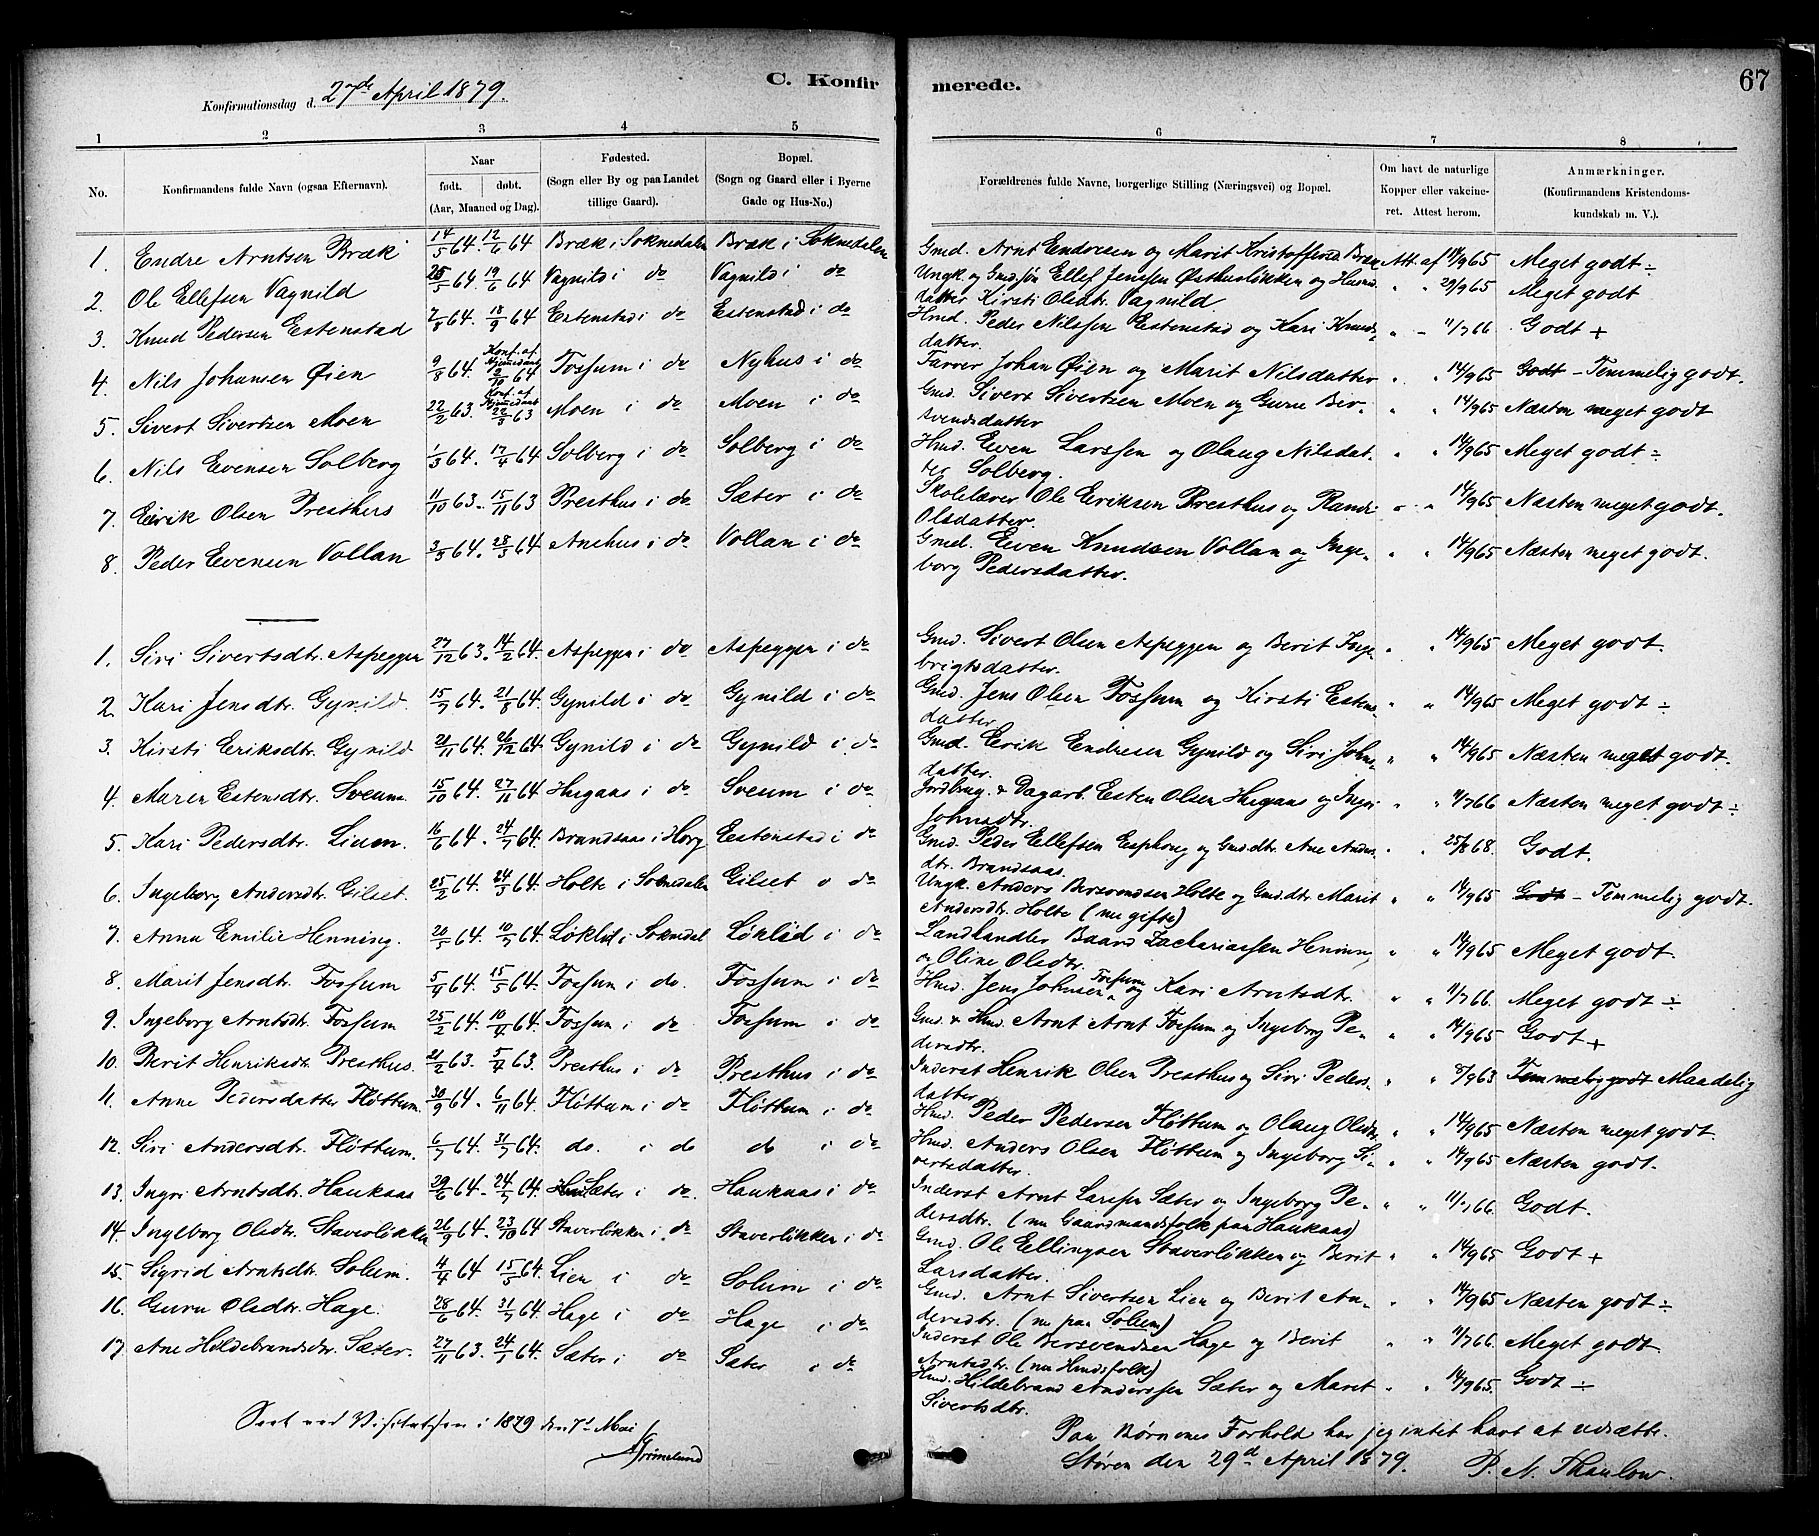 C. Konfirmerede. 67
Konfirmationsdag d. 27de April 1879.
1 2 3 4 5 6 7 8
No. Konfirmandens fulde Navn (ogsaa Efternavn). Naar født. døbt. (Aar, Maaned og Dag). Fødested. (Sogn eller By og paa Landet tillige Gaard). Bopæl. (Sogn og Gaard eller i Byerne Gade og Hus-No.) Forældrenes fulde Navne, borgerlige Stilling (Næringsvei) og Bopæl. Om havt de naturlige Kopper eller vakcineret. Attest herom. Anmærkninger. (Konfirmandens Kristendomskundskab m. V.).
1. Endre Arntsen Bræk 14/5 64. 12/6 64 Bræk i Soknedalen Bræk i Soknedalen Gmd. Arnt Endresen og Marit Kristoffersd. Bræk Att. af 14/9 65 Meget godt ÷
2. Ole Ellefsen Vagnild 25/5 64. 19/6 64 Vagnild i do Vagnild i do Ungk. og Gmd.søn Ellef Jenssen Østhusløkken og Husmd.
datter Kirsti Olsdtr. Vagnild " " 29/9 65 Meget godt
3. Knud Pedersen Estenstad 7/8 64. 18/9 64 Estenstad i do Estenstad i do Hmd. Peder Nilssen Estenstad og Kari Knuds-
datter. " " 11/7 66 Godt +
4. Nils Johansen Øien 9/8 64. Konf. af Hjemedaab 2/10 64 Fossum i do Nyhus i do Farver Johan Øien og Marit Nilsdatter " " 14/9 65 Godt - Temmelig godt.
5. Sivert Sivertsen Moen 22/2 63. Konf. af Hjemedaab 22/3 63 Moen i do Moen i do Gmd. Sivert Sivertsen Moen og Guru Ber-
svendsdatter " " 14/9 65 Næsten meget godt
6. Nils Evensen Solberg 1/3 64. 17/4 64 Solberg i do Solberg i do Hmd. Even Larssen og Olaug Nilsdat-
ter Solberg. " " 14/9 65 Meget godt ÷
7. Eirik Olsen Presthus 11/10 63. 15/11 63 Presthus i do Sæter i do Skolelærer Ole Eriksen Presthus og Randi
Olsdatter. " " 14/9 65 Næsten meget godt.
8. Peder Evensen Vollan 3/3 64. 28/3 64 Anehus i do Vollan i do Gmd. Even Knudsen Vollan og Inge-
borg Pedersdatter. " " 14/9 65 Næsten meget godt.
1. Siri Sivertsdtr. Aspeggen 27/12 63. 14/2 64. Aspeggen i do Aspeggen i do Gmd. Sivert Olsen Aspeggen og Berit Inge-
brigtsdatter. " " 14/9 65 Meget godt.
2. Kari Jensdtr. Gynild. 15/7 64. 21/8 64. Gynild i do Gynild i do Gmd. Jens Olsen Fossum og Kirsti Estens-
datter. " " 14/9 65 Meget godt ÷
3. Kirsti Eriksdtr. Gynild 21/11 64. 26/12 64 Gynild i do Gynild i do Gmd. Erik Endresen Gynild og Siri Johns-
datter. " " 14/9 65 Næsten meget godt.
4. Maren Estensdtr. Sveum 15/10 64. 27/11 64 Hugaas i do Sveum i do Jordbrug. & Dagarb. Esten Olsen Hugaas og Ingri
Johnsdtr. " " 11/7 66 Næsten meget godt ÷
5. Kari Pedersdtr. Lium. 16/6 64. 24/7 64. Brandsaas i Horg Estenstad i do Gmd. Peder Ellefsen Esphoug og Gmd.dtr. Ane Anders-
dtr. Brandsaas. " " 25/8 68. Godt.
6. Ingeborg Andersdtr. Gilset. 25/2 64. 24/3 64. Holte i Soknedalen Gilset i do Ungk. Anders Bersvendsen Holte og Gmd.dtr. Marit
Andersdtr. Holte (nu gifte) " " 14/9 65 Godt - Temmelig godt.
7. Anna Emilie Henning. 20/5 64. 10/7 64. Løklid i Soknedal Løklid i do Landhandler Baard Zachariassen Henning
og Oline Olsdtr. " " 14/9 65 Meget godt.
8. Marit Jensdtr. Fossum 5/4 64. 15/5 64. Fossum i do. Fossum i do Hmd. Jens Johnsen Fossum og Kari Arntsdtr. " " 11/7 66. Meget godt ÷
9. Ingeborg Arntsdtr. Fossum 25/2 64. 10/4 64. Fossum i do Fossum i do Gmd. & Hmd. Arnt Arnt Fossum og Ingeborg Pe-
dersdtr. " " 14/9 65 Godt +
10. Berit Henriksdtr. Presthus. 21/2 63. 5/4 63. Presthus i do Presthus i do Inderst Henrik Olsen Presthus og Siri Peders-
datter " " 8/9 63 Temmelig godt Maadelig
11. Anne Pedersdatter Fløttum. 30/9 64. 6/11 64. Fløttum i do Fløttum i do Hmd. Peder Pedersen Fløttum og Olaug Olsdtr. " " 14/9 65 Næsten meget godt.
12. Siri Andersdtr. Fløttum. 6/7 64. 31/7 64. do. i do do i do Hmd. Anders Olsen Fløttum og Ingeborg Si-
vertsdatter. " " 14/9 65 Næsten godt.
13. Ingri Arntsdtr. Haukaas 29/6 64. 24/7 64. Sæter i do. Haukaas i do Inderst Arnt Larssen Sæter og Ingeborg Pe-
dersdtr. (nu Gaardmandsfolk paa Haukaas) " " 11/7 66. Godt.
14. Ingeborg Olsdtr. Staverløkken 26/9 64. 23/10 64 Staverløkken i do Staverløkken i do Gmd. Ole Ellingsen Staverløkken og Berit
Larsdatter. " " 14/9 65 Godt +
15. Sigrid Arntsdtr. Solum. 4/4 64 15/5 64. Lien i do Solum i do Gmd. Arnt Sivertsen Lien og Berit An-
dersdtr. (nu paa Solum) " " 14/9 65 Næsten godt ÷
16. Guru Olsdtr. Hage. 28/6 64. 31/7 64. Hage i do Hage i do Inderst Ole Bersvendsen Hage og Berit
Arntsdtr. (nu Hmdsfolk) " " 11/7 66. Meget godt.
17. Ane Hildebrandsdtr. Sæter. 27/11 63. 24/1 64. Sæter i do Sæter i do Hmd. Hildebrand Anderssen Sæter og Maret
Sivertsdtr. " " 14/9 65. Godt ÷
Seet ved Visitatsen i 1879 den 7d Mai
Grimelund
Paa Børnenes Forhold har jeg intet havt at udsætte.
Støren den 29d April 1879. P. A. Thaulow.